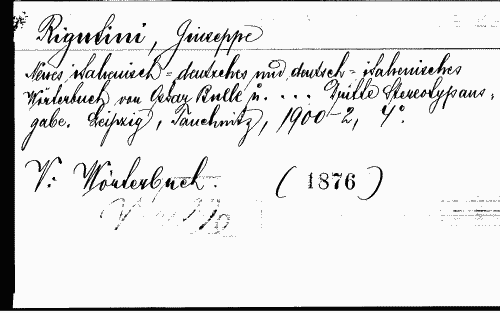 Rigutini, Giuseppe
Neues italienisch = deutsches und deutsch = italienisches
Wörterbuch von Oskar Bulle u. ... Dritte Stereotypaus =
gabe. Leipzig, Tauchnitz, 1900-2, 4°.
V: Wörterbuch. (1876)